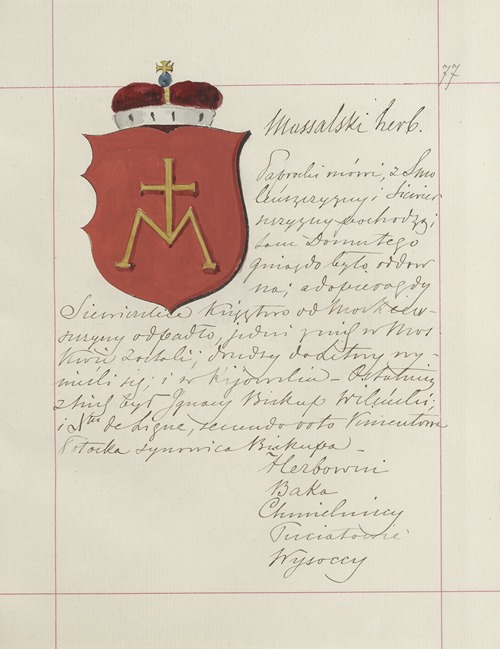 77
Massalski herb.
Paprocki mówi, z Smo
leńszczyzny i Siewier
szczyzny pochodzą i
tam Domu tego
gniazdo było oddaw
na; a dopiero gdy
Siewierskie Księstwo od Moskiew-
szczyzny odpadło, jedni z nich w Mos-
kwie zostali; drudzy do Litwy wy-
nieśli się, i w Kijowskie – Ostatnim
z nich był Ignacy Biskup Wileński;
i de Ligne, secundo voto Vincentowa
Potocka synowica Biskupa –
Herbowni
Baka
Chmielniccy
Wysoccy